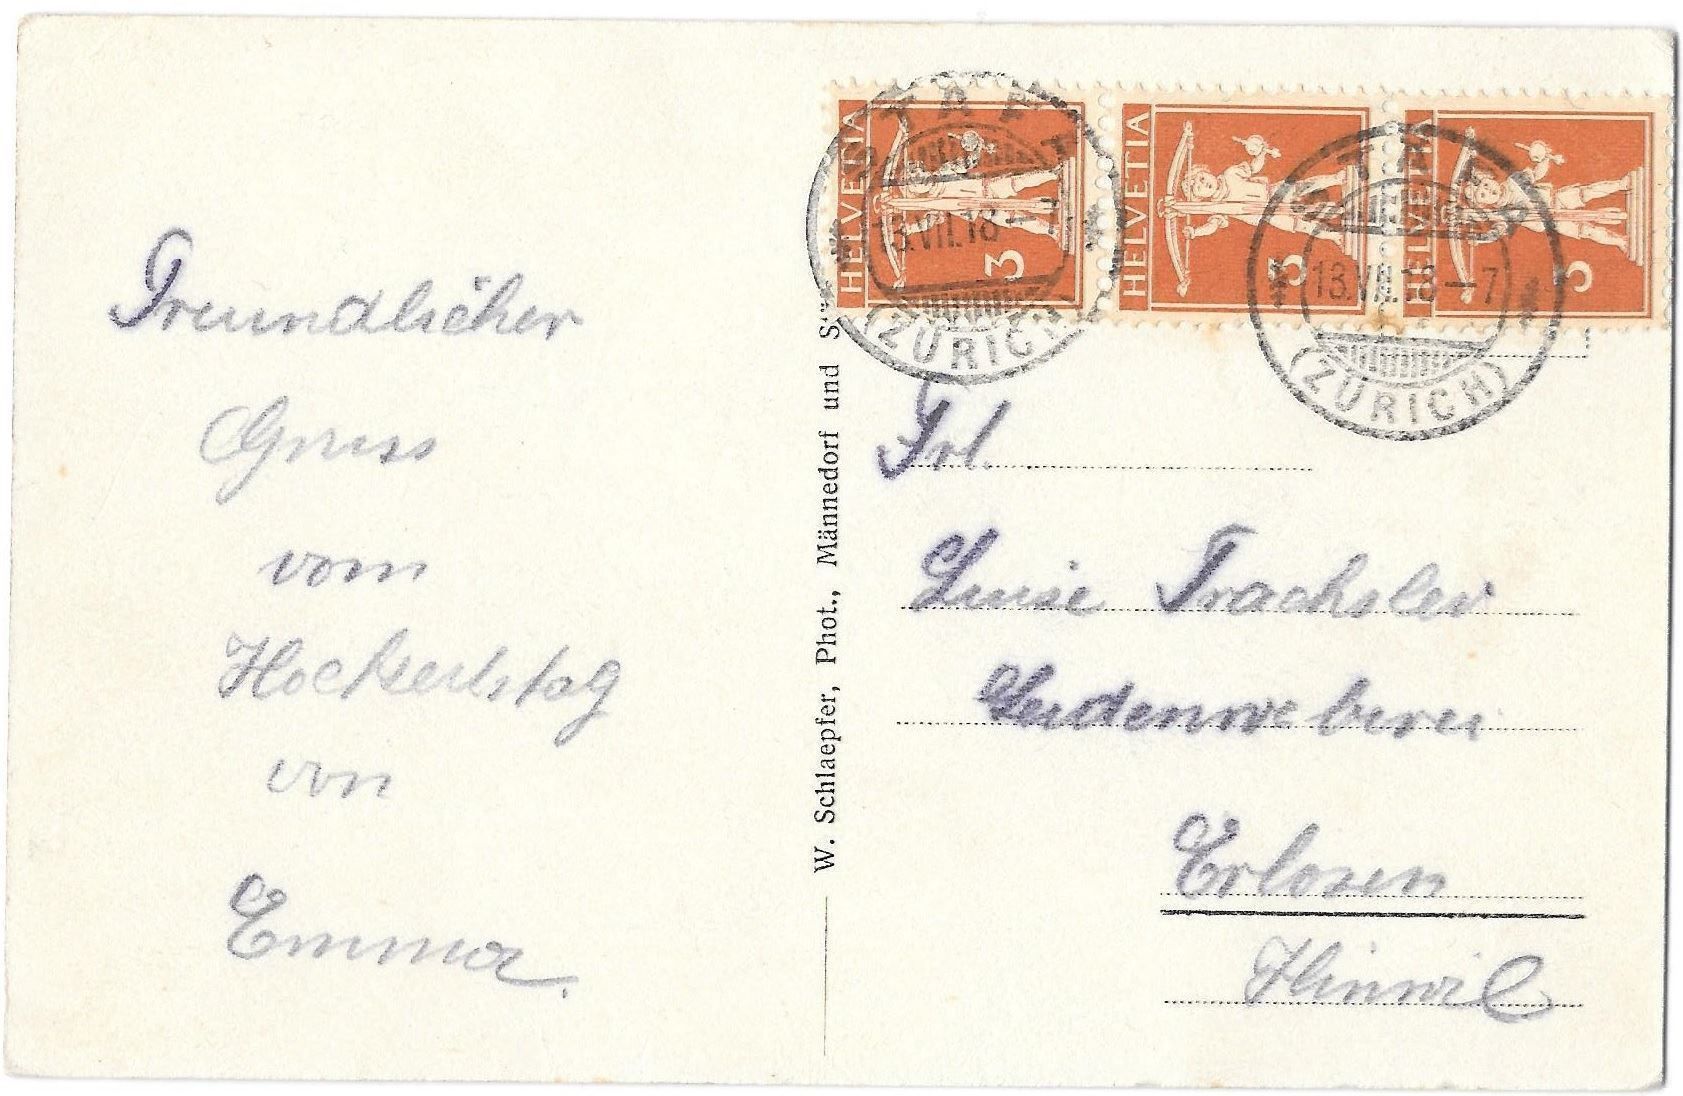 Freundlicher
Gruss
vom
Hochzeitstag
von
Emma.
W. Schlaepfer, Phot., Männedorf und
HELVETIA 3
HELVETIA 3
HELVETIA 3
STÄFA
13.VII.18-7
(ZÜRICH)
STÄFA
13.VII.18-7
(ZÜRICH)
Frl.
Luise Trachsler
Seidenweberei
Erlosen
Hinwil